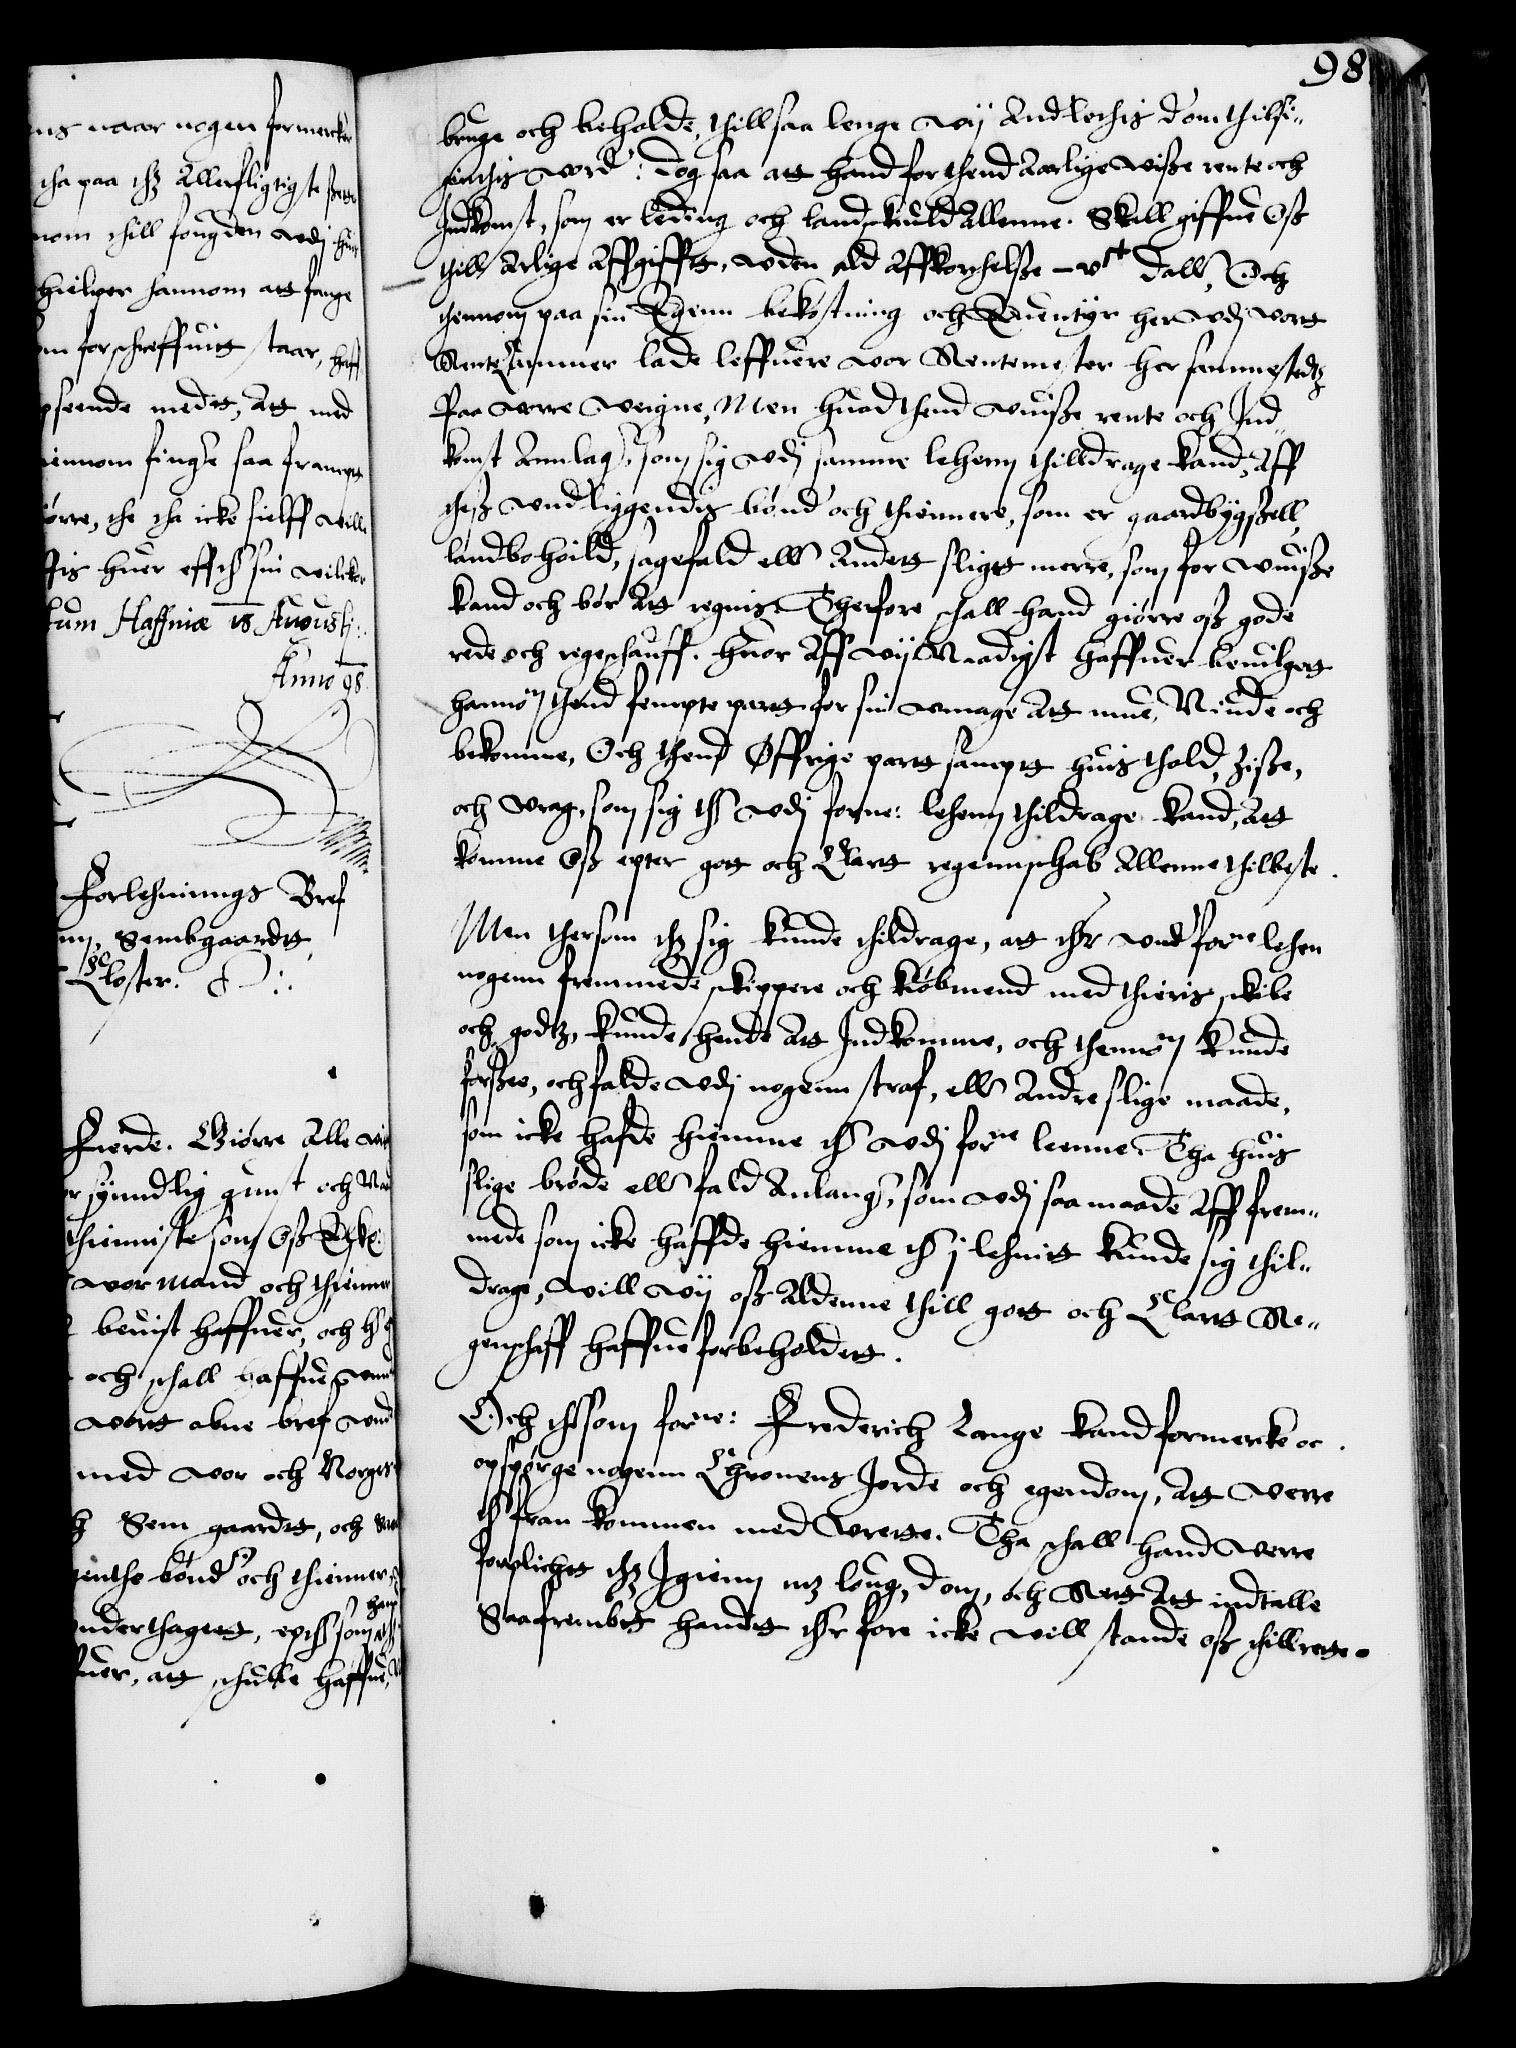 98
bruge och beholde, thill saa lenge wij Anderlethis d'om thilsi„
sinthis word: Dog saa att hand for thend Aarlige wisse rente och
Indkomst, som er leding och landskuld Allenne. Skall giffue Oss
thill Arlige Affgifftt, uden ald Affkortelsse – vᶜ Daller, Och
thennom paa sin Egenn bekostning och Euentyr her udj wort
Rente Cammer lade leffuere wor Rentemester her sammestedtz
Paa worre weigne, Men huad thend uuisse rente och Ind„
komst Annlag, som sig udj samme lehenn thilldrage kand, Aff
thess underliggendis bønd och thiennere, som er gaardbygssell,
landbohold, sagefald eller Andett sligt merre, som for uuisse
kand och bør Att regnis. Therfore schall hand giørre oss gode
rede och regeschauff. Huor Aff wij Naadigst haffuer beuilgett
hannom thend fempte partt for sin umage Att nue, Niude och
bekomme, Och thend Øffrige partt sampt huis thold, Zisse,
och wrag, som sig ther udj forne: lehenn thildrage kand, Att
komme Oss epter gott och Klartt regennschab Allenne thilbeste.
Men thersom thz sig kunde thildrage, att ther und forne lehen
nogenn fremmede skippere och kiøbmend med thieris skibe
och godtz, kunde hende Att Indkomme, och thennom kunde
forsee, och falde udj nogenn straf, eller Andre slige maade,
som icke hafde hiemme ther udj forne lenne. Tha huis
slige brøde eller fald Anlanger, som udj saa maade Aff frem„
mede som icke haffde hiemme ther j lehnitt kunde sig thil„
drage, will wij oss Aldenne thill gott och Klartt Re„
genschaff haffue forbeholdett.
Och thersom forne: Frederich Lange kand formercke oc
opspørge nogenn Chronens Jorde och egendom, Att werre
ther fran kommen med wrette. Tha schall hand werre
forplicht thz Igienn mz loug, dom, och Rett Att indtalle
Saafrembtt handtt ther fore icke will stande oss thillrette.

ns naar nogen formercker
tha paa thz Allerfligtigste
nom thill fougden udj
hielper hannom att fange
om forschreffuitt staar,
pseende medtt, Att med
innom finge saa frampt
iørre, the tha icke sielff wille
sin wilckor
tum Haffniæ 18 Augustj:
Anno 98

Forlehnings Bref
Sembgaardtt
Closter.

Fierde. Giørre Alle
synndlig gunst och
thienniste som Oss
wor mand och thienner
beuist haffuer, och
och schall haffue
wortt abne bref
med wor och Norges
Sem gaardtt, och
bønd och thienner
undertagett, som
uer, att schulle haffue